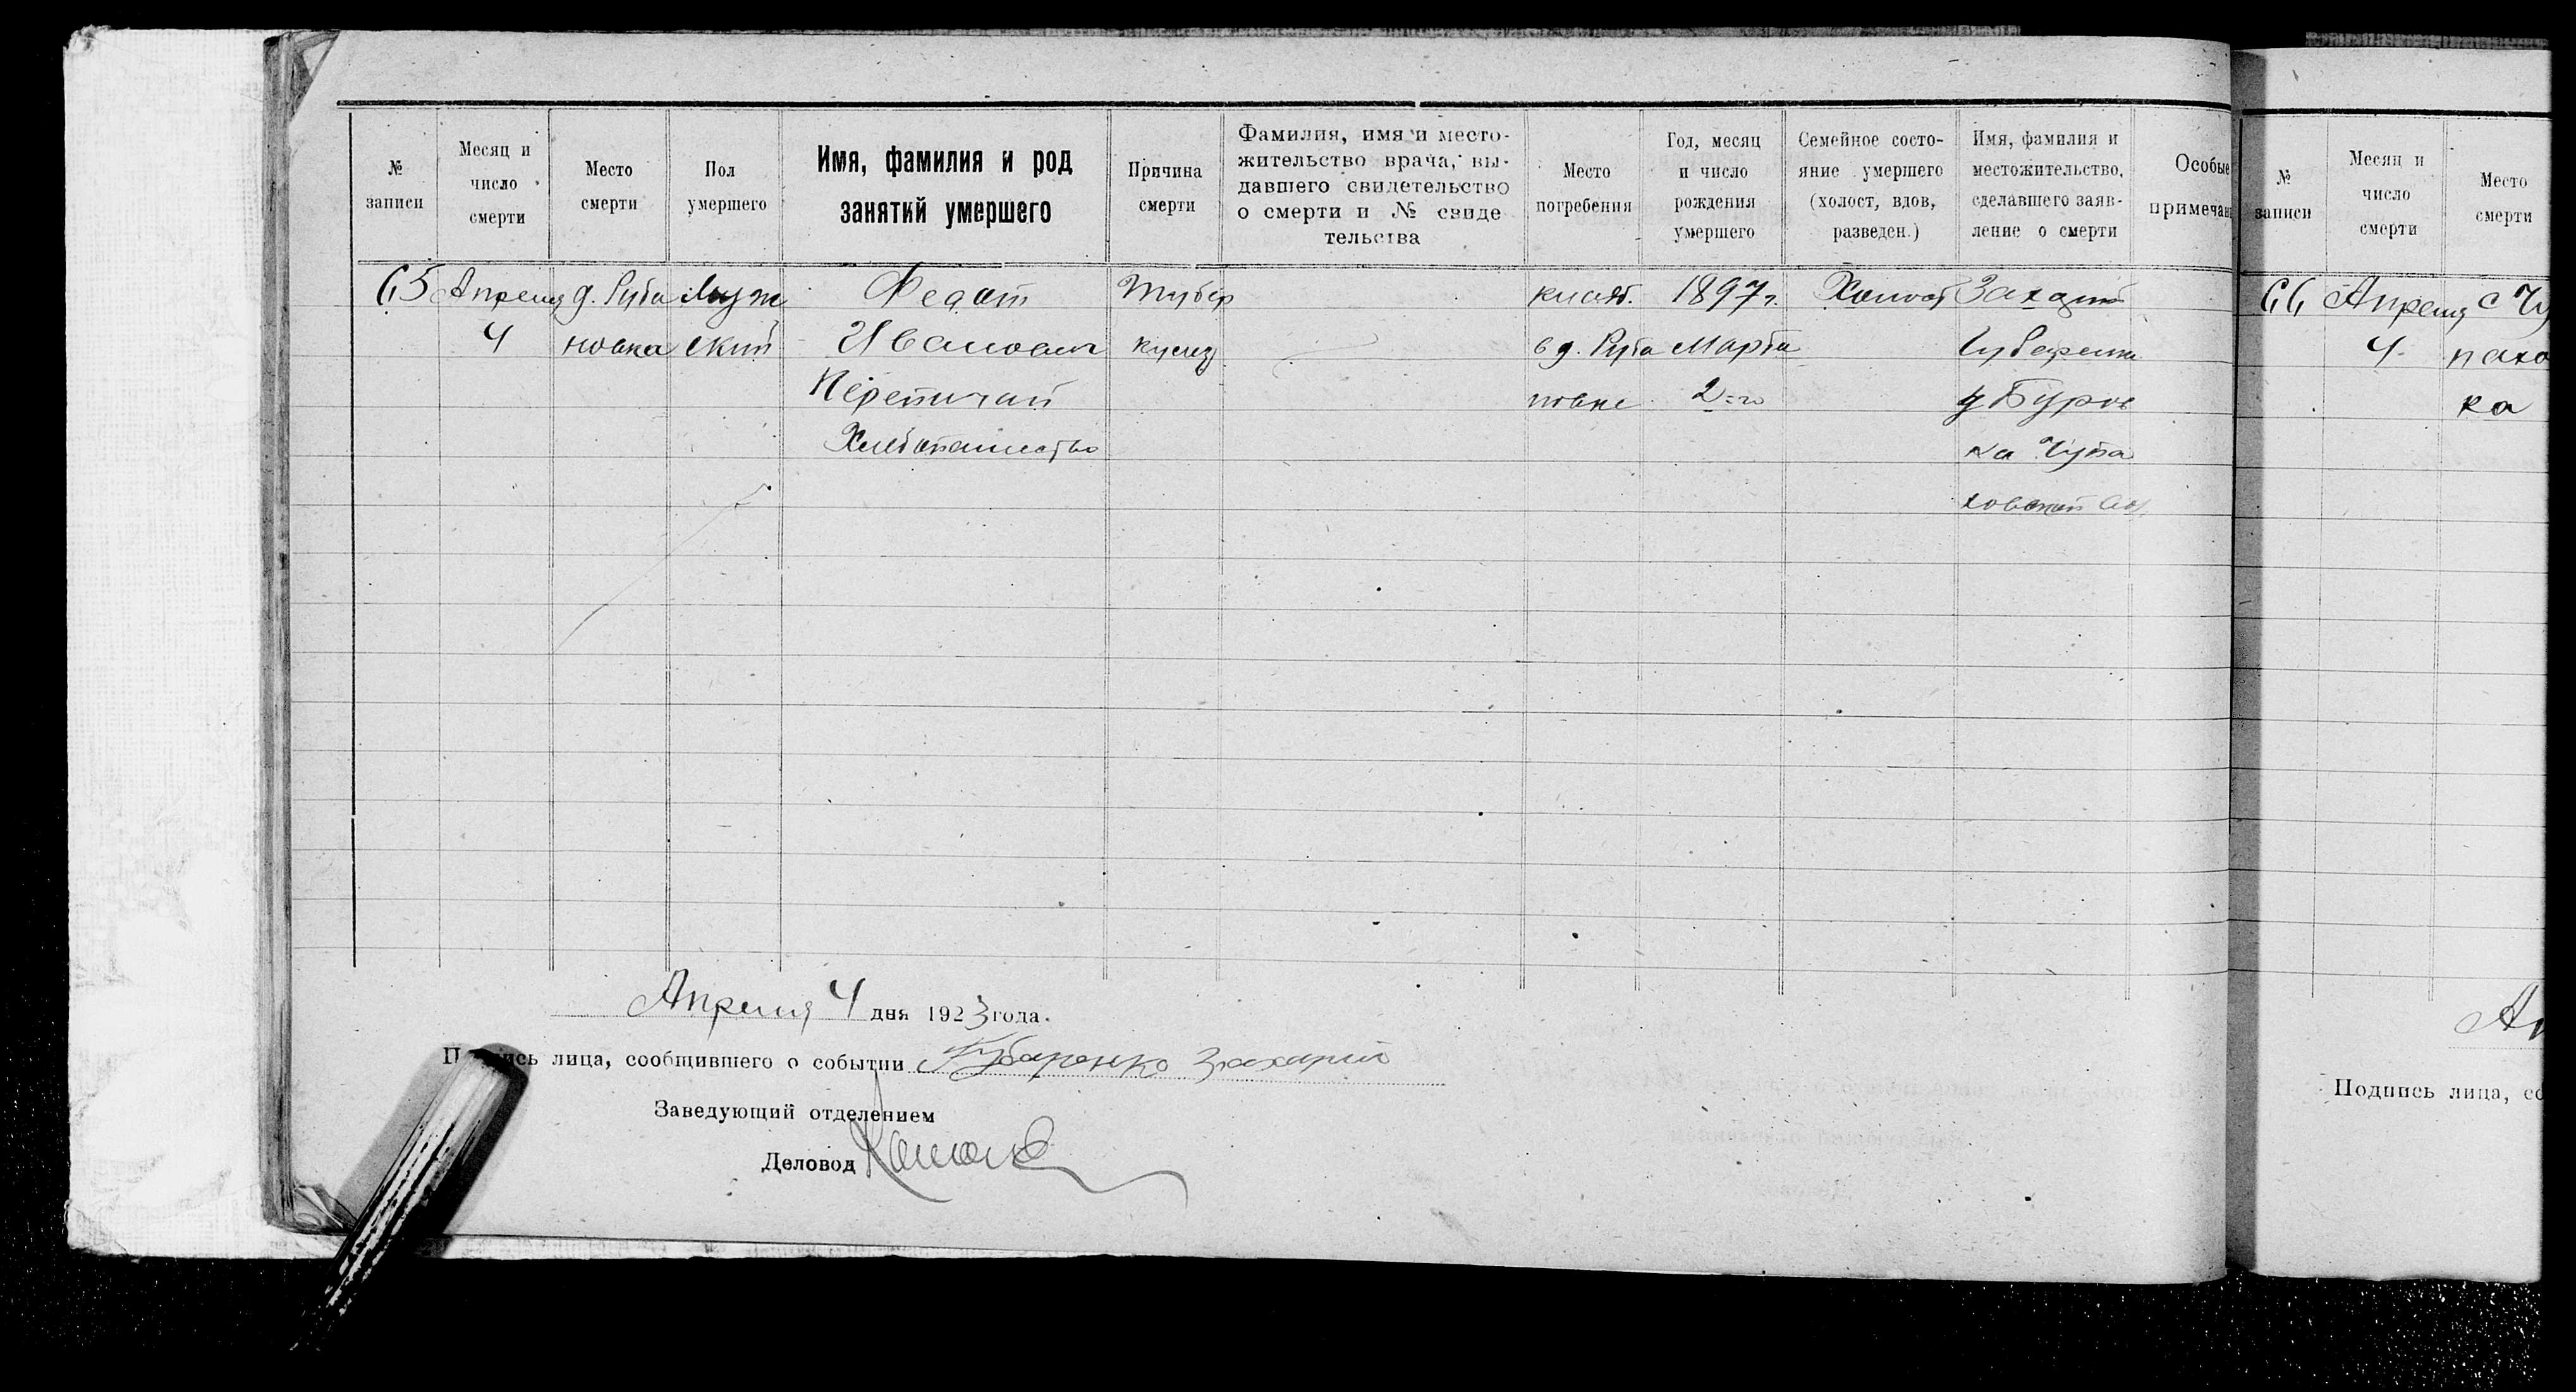 № записи
Месяц и число смерти
Место смерти
Пол умершего
Имя, фамилия и род занятий умершего
Причина смерти
Фамилия, имя и место-
жительство врача, вы-
давшего свидетельство
о смерти и № свиде
тельства
Место погребения
Год, месяц и число рождения умершего
Семейное состо-
яние умершего
(холост, вдов,
разведен.)
Имя, фамилия и
местожительство,
сделавшего заяв-
ление о смерти
Особые
примечан
65 Апреля д. Руба Муж Федот Тубер кладб. 1897 г. Холост Захарий
4 новка ский Иванович кулез в д. Руба Марта
новке 2-го
Хлебопашество
ка Чупа
ховской
Апреля 4 дня 1923 года.
Подпись лица, сообщившего о событии Губаренко Захарий
Заведующий отделением
Деловод
№ записи
Месяц и число смерти
Место смерти
66 Апреля с Чу
4 пахо
ка
Ап
Подпись лица, со